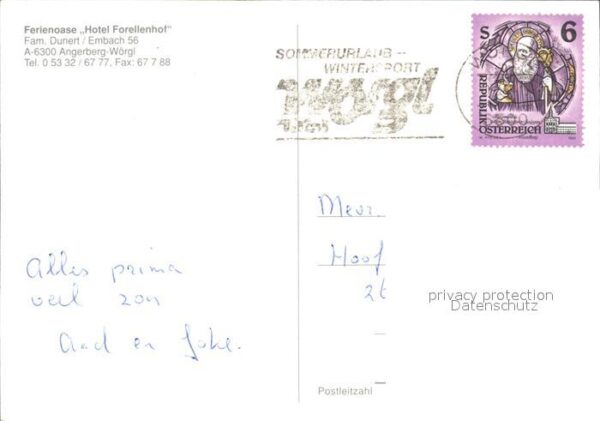 Ferienoase „Hotel Forellenhof“
Fam. Dunert / Embach 56
A-6300 Angerberg-Wörgl
Tel. 0 53 32 / 67 77, Fax: 67 7 88
SOMMERURLAUB --
WINTERSPORT
wörgl
S 6
REPUBLIK
ÖSTERREICH
Mevr.
Hoof
2t
Alles prima
veel zon
Aad en Joke.
privacy protection
Datenschutz
Postleitzahl